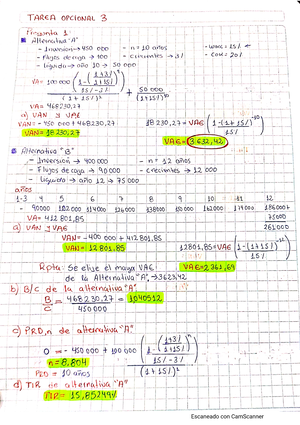 TAREA OPCIONAL 3
Pregunta 1
Alternativa "A"
- Inversión → 450 000 - n = 10 años - WACC = 15%
- Flujos de caja → 100 - Crecientes → 3% - COK = 20%
- Liquida → año 10 → 50 000
VA = 100 000 (1 - (1+3% / 1+15%)^n / 15% - 3%) / (1+15%)² + 50 000 / (1+15%)^10
VA = 468 230,27
a) VAN y VAE
VAN = - 450 000 + 468 230,27 18 230,27 = VAE (1 - (1+15%)^-10 / 15%)
VAN = 18 230,27 VAE = 3 632,42
Alternativa "B"
- Inversión → 400 000 - n = 12 años
- Flujos de caja → 90 000 - crecientes → 12 000
- Liquidará → año 12 → 75 000
años
1-3 4 5 6 7 8 9 10 11 12
- 90 000 102 000 114 000 126 000 138 000 150 000 162 000 174 000 186 000 +
VA = 412 801,85 75 000
a) VAN y VAE 261 000
VAN = - 400 000 + 412 801,85
VAN = 12 801,85 12 801,85 = VAE (1 - (1+15%)^-12 / 15%)
Rpta: Se elige el mayor VAE VAE = 2 361,69
de la Alternativa "A", → 3 632,42
b) B/C de la alternativa "A"
B/C = 468 230,27 / 450 000 = 1,040512
c) PRD, n de alternativa "A"
0 = - 450 000 + 100 000 (1 - (1+3% / 1+15%)^n / 15% - 3%) / (1+15%)²
n = 8,804
PRD = 10 años
d) TIR de alternativa "A"
TIR = 15,85249%
Escaneado con CamScanner